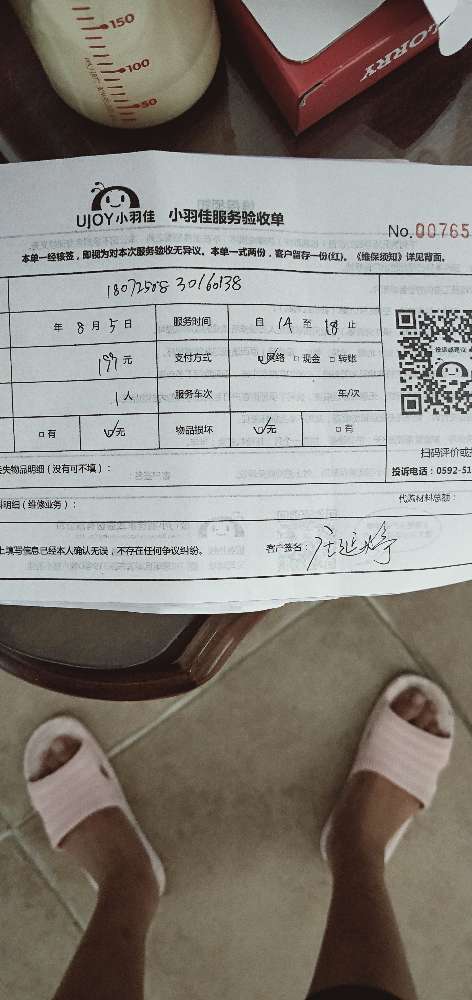 150
100
50
LORRY
UJOY小羽佳 小羽佳服务验收单
No.00765
本单一经核签，即视为对本次服务验收无异议。本单一式两份，客户留存一份(红)。《维保须知》详见背面。
年 8 月 5 日 服务时间 自 14 至 18 止
元 支付方式 网络 □ 现金 □ 转账
1 人 服务车次 年/次
□ 有 无 物品损坏 无 □ 有
扫码评价或投
失物品明细（没有可不填）：
投诉电话：0592-51
明细（维修业务）：
代购材料总额：
上填写信息已经本人确认无误；不存在任何争议纠纷。
客户签名：